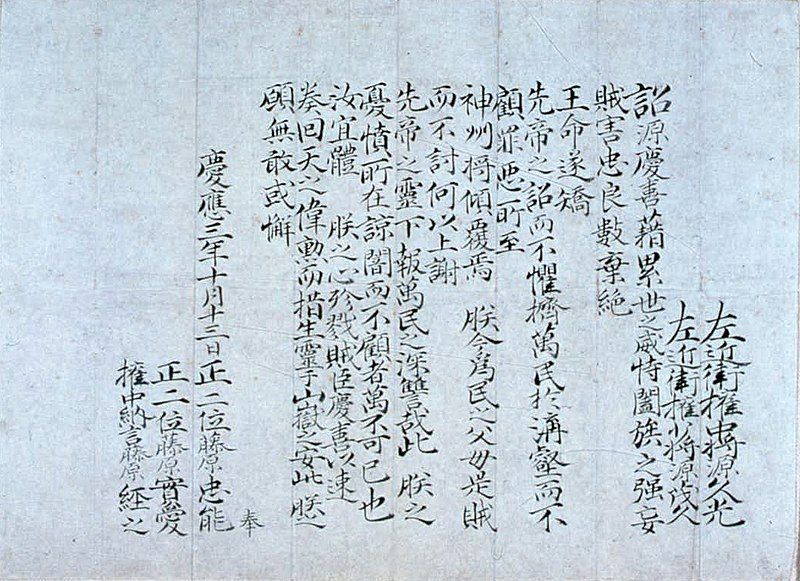 左近衛権中将源久光
左近衛権少将源茂久
詔源慶喜藉累世之威恃闔族之强妄
賊害忠良數棄絶
王命遂矯
先帝之詔而不懼擠萬民於溝壑而不
顧罪惡所至
神州将傾覆焉　朕今爲民之父母是賊
而不討何以上謝
先帝之靈下報萬民之深讐哉此　朕之
憂憤所在諒闇而不顧者萬不可已也
汝宜體　朕之心殄戮賊臣慶喜以速
奏回天之偉勲而措生靈于山嶽之安此　朕之
願無敢或懈
奉
慶應三年十月十三日正二位藤原忠能
正二位藤原實愛
権中納言藤原経之